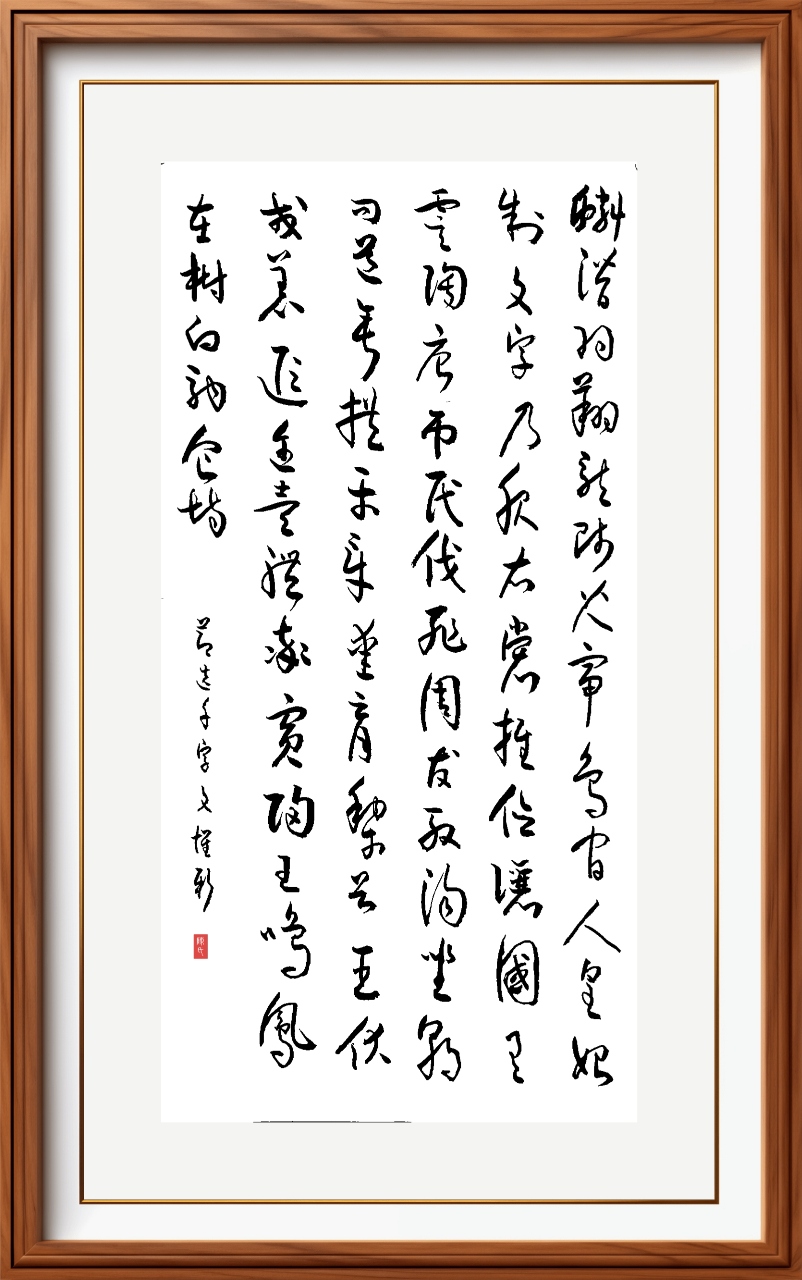 鱗潛羽翔龍師火帝鳥官人皇始
制文字乃服衣裳推位讓國有
虞陶唐吊民伐罪周發殷湯坐朝
問道垂拱平章愛育黎首臣伏
戎羌遐邇壹體率賓歸王鳴鳳
在樹白駒食場
节选千字文